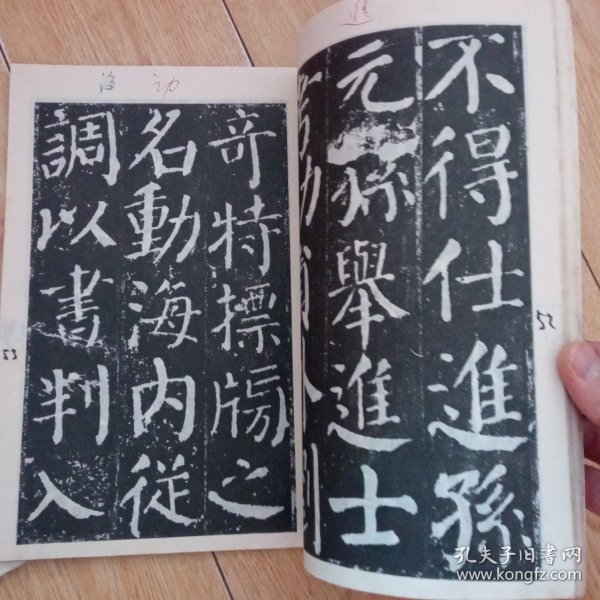 不得仕進孫
元孫舉進士
52
奇特標牓之
名動海內從
調以書判入
海 动
53
孔夫子旧书网
www.kongfz.com